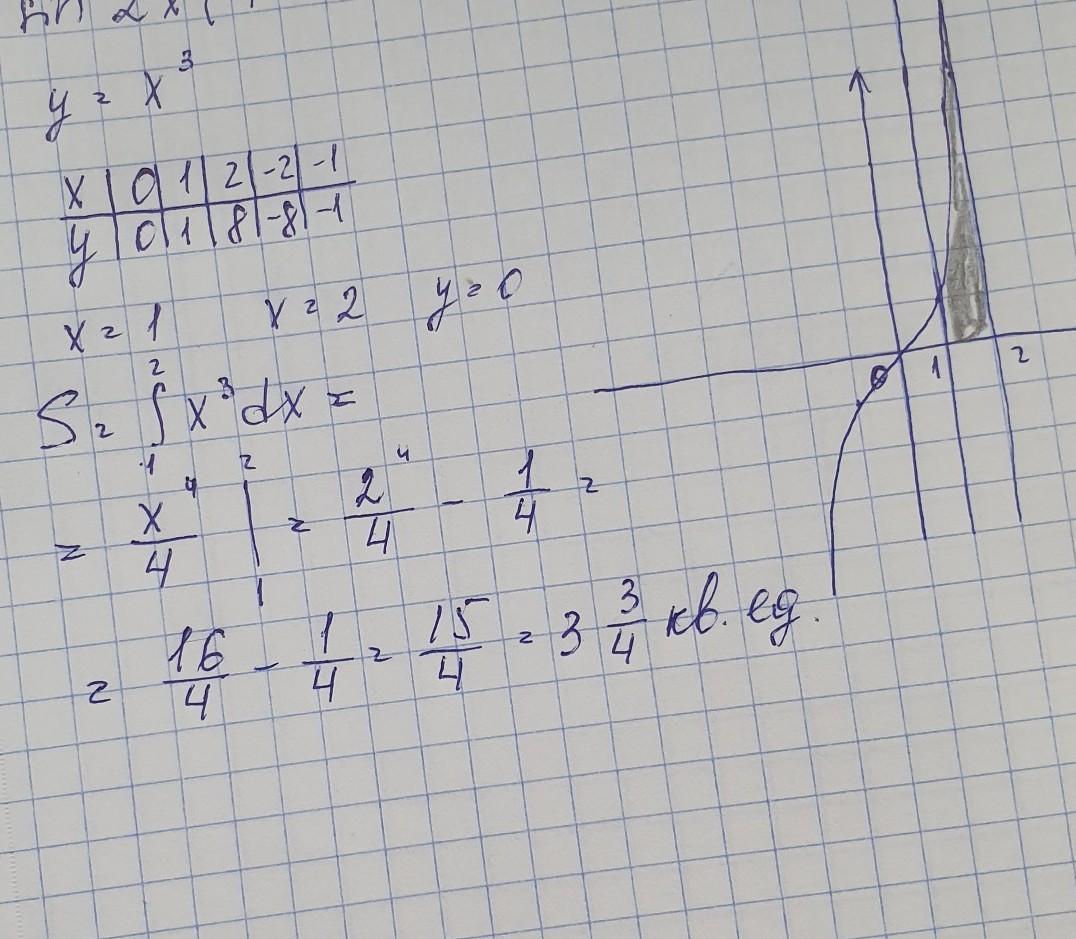 y = x³
x | 0 | 1 | 2 | -2 | -1
y | 0 | 1 | 8 | -8 | -1
x = 1 x = 2 y = 0
S = ∫₁² x³ dx =
= x⁴/4 |₁² = 2⁴/4 - 1/4 =
= 16/4 - 1/4 = 15/4 = 3 3/4 кв. ед.
0 1 2